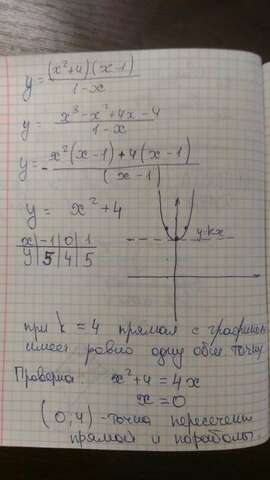 y = (x²+4)(x-1) / 1-x
y = x³-x²+4x-4 / 1-x
y = - x²(x-1)+4(x-1) / (x-1)
y = x²+4
x | -1 | 0 | 1
y | 5 | 4 | 5
y=kx
при k = 4 прямая с графиком
имеет ровно одну общ. точку
Проверка: x²+4 = 4x
x = 0
(0;4) - точка пересечени
прямой и параболы.